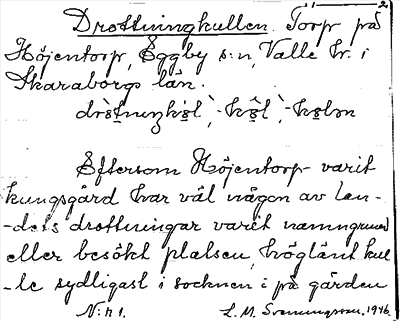 Drottningkullen. Torp på
Höjentorp, Eggby s:n, Valle hr. i
Skaraborgs län.
Eftersom Höjentorp varit
kungsgård har väl någon av lan-
-dets drottningar varit namngivad
eller besökt platsen, höglänt kul
-le sydligast i socknen i på gården
N:r 1. L. M. Svenungsson. 1946.